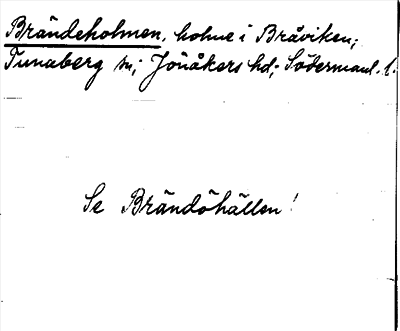 Brändeholmen, holme i Bråviken;
Tunaberg sn; Jönåkers hd; Södermanl. l.
Se Brändöhällen!